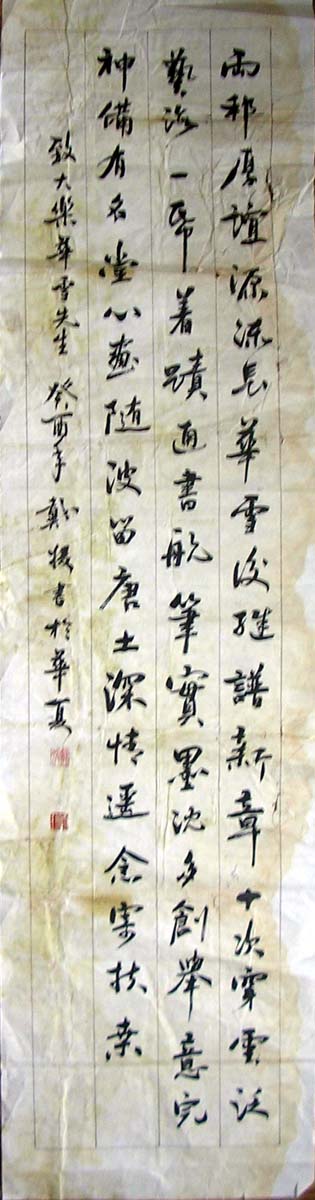 兩邦厚誼源流長華雪後継譜新章十次穿雲泛
藝海一帋着蹟通書航筆實墨沈多創舉意完
神備有名堂心畫随波留唐土深情遥念寄扶桑
致大樂華雪先生 癸酉年 戴 書於華夏